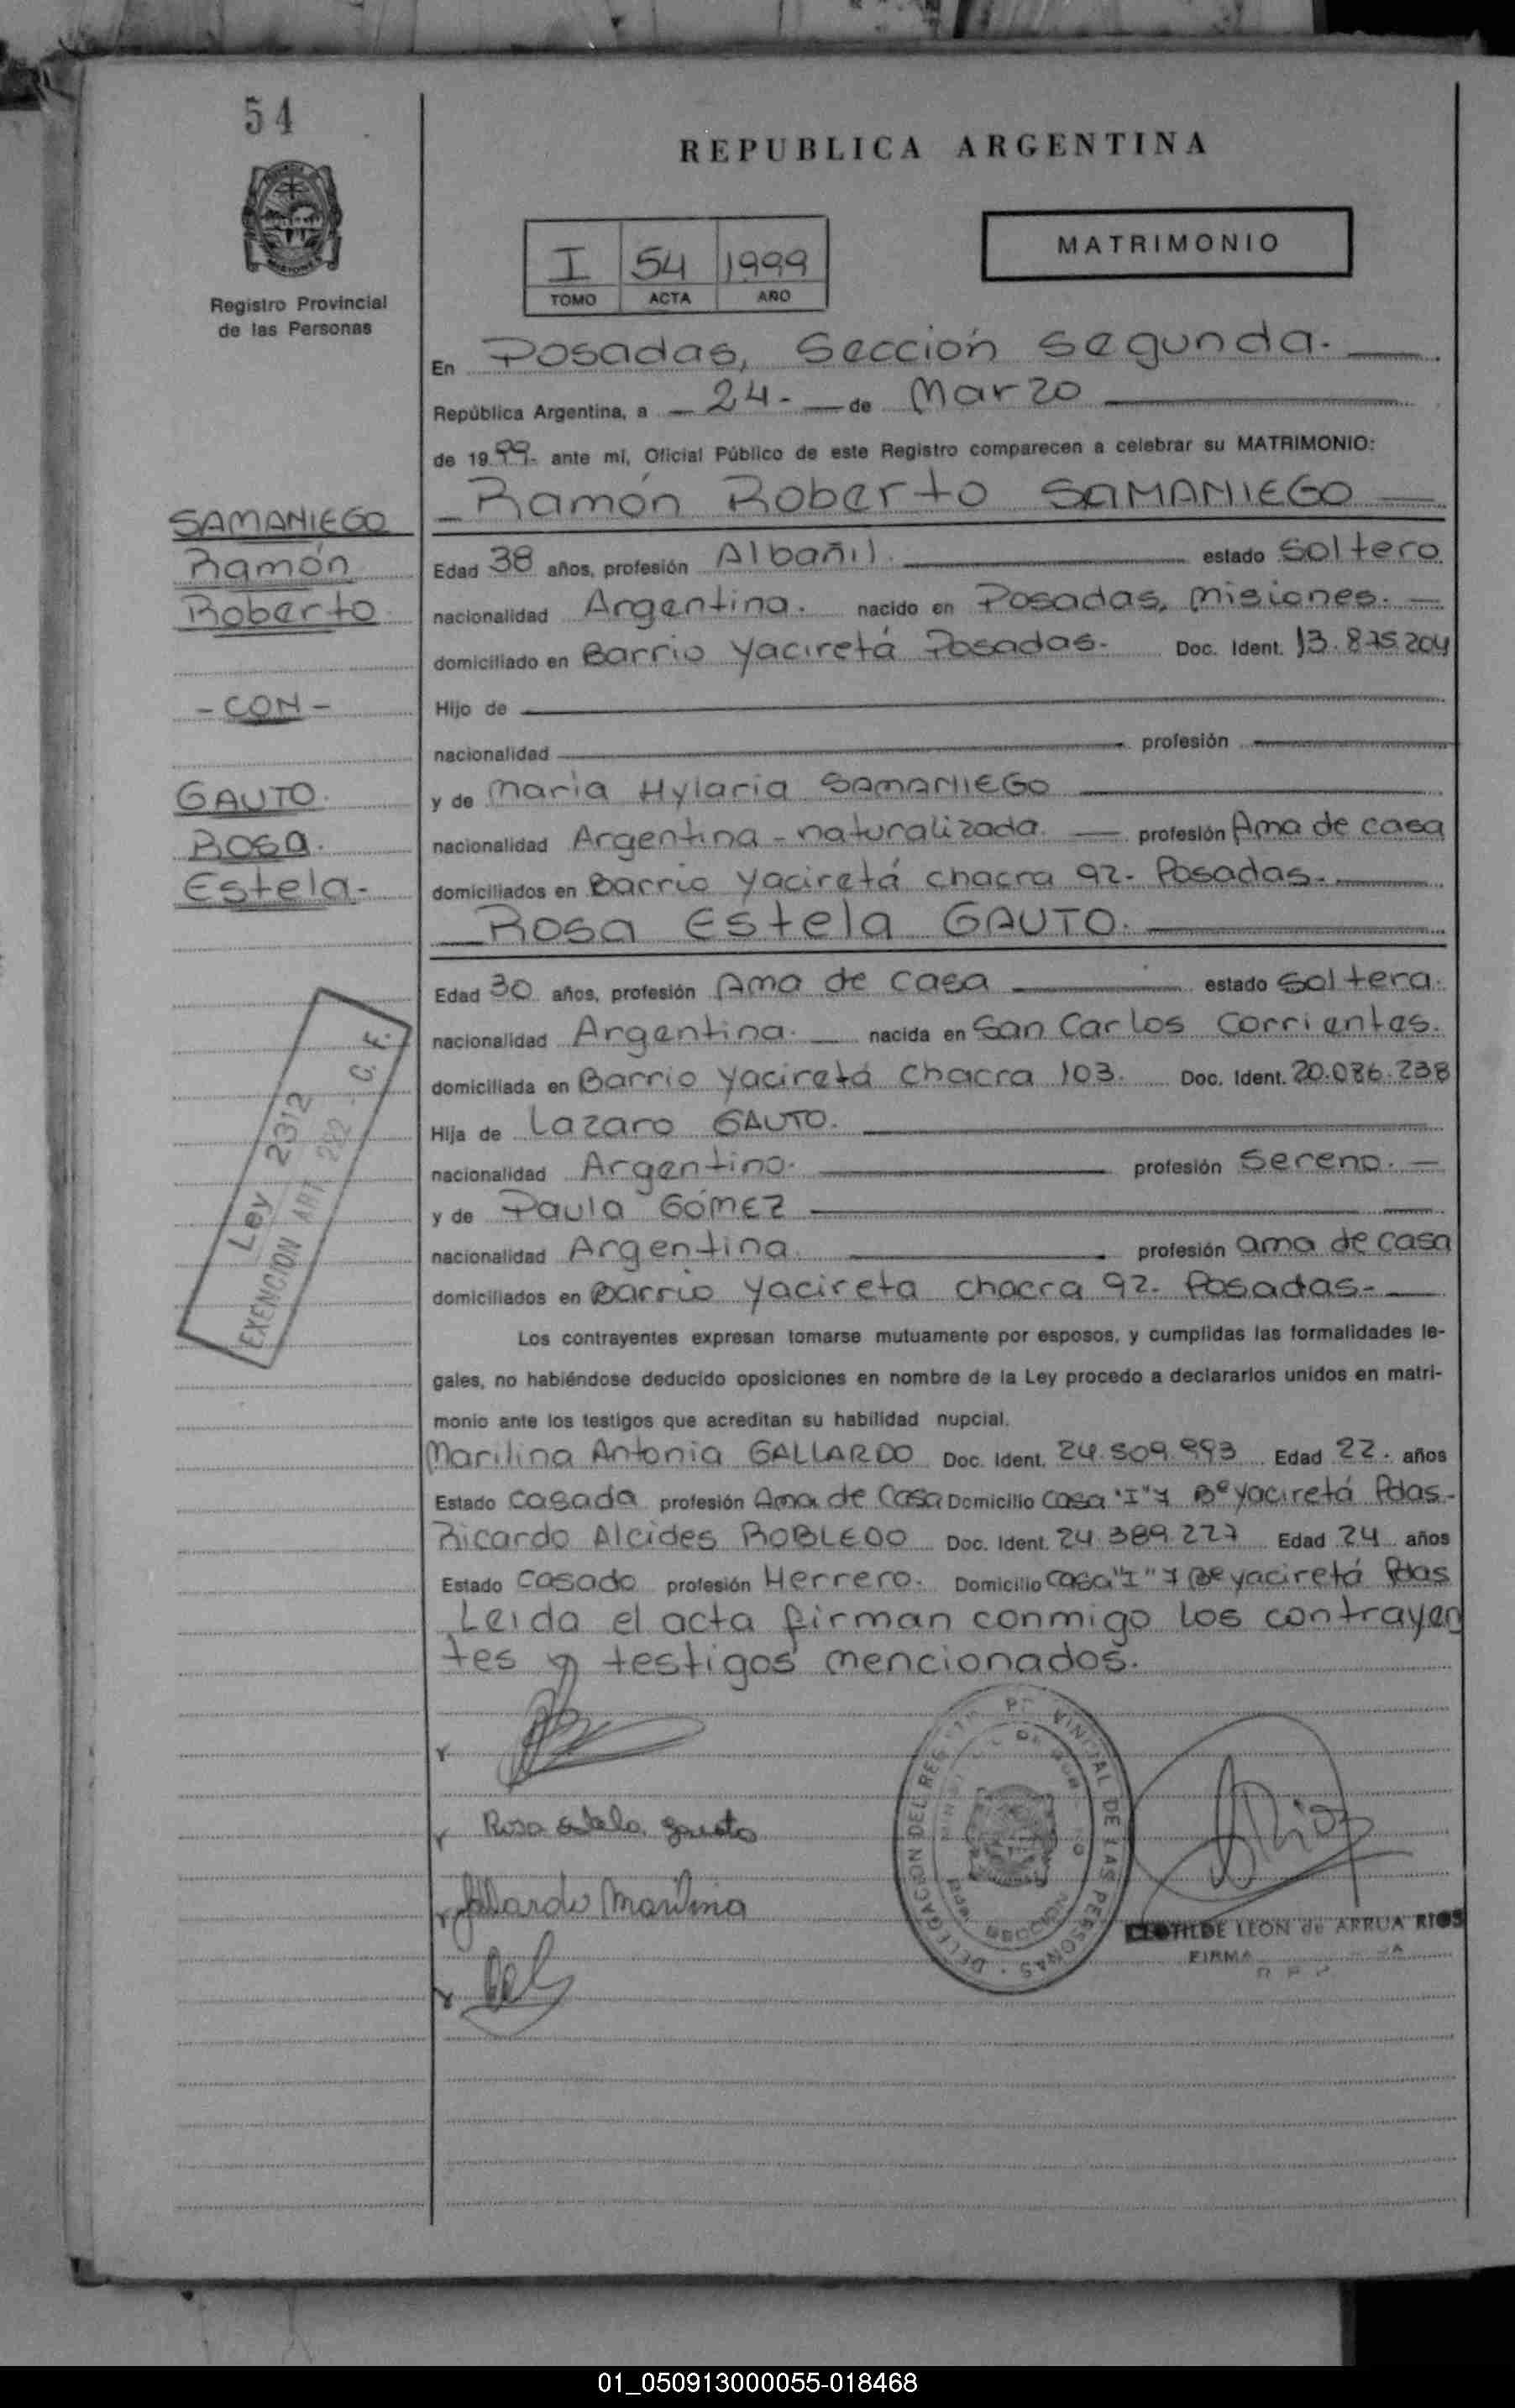 54
REPUBLICA ARGENTINA
MATRIMONIO
I 54 1999
TOMO ACTA AÑO
Registro Provincial
de las Personas
En Posadas, Sección segunda.
República Argentina, a - 24 - de Marzo
de 1999- ante mí, Oficial Público de este Registro comparecen a celebrar su MATRIMONIO:
Ramón Roberto SAMANIEGO
SAMANIEGO
Ramón
Roberto
- CON -
GAUTO.
Rosa.
Estela-
Edad 38 años, profesión Albañil. estado Soltero
nacionalidad Argentina. nacido en Posadas, Misiones. -
domiciliado en Barrio Yaciretá Posadas- Doc. Ident. 13.875.204
Hijo de
nacionalidad profesión
y de María Hylaria SAMANIEGO
nacionalidad Argentina - naturalizada. profesión Ama de casa
domiciliados en Barrio Yaciretá chacra 92- Posadas-
Rosa Estela GAUTO.
Edad 30 años, profesión Ama de casa estado Soltera.
nacionalidad Argentina. nacida en San Carlos Corrientes.
domiciliada en Barrio Yaciretá Chacra 103. Doc. Ident. 20.086.238
Hija de Lazaro GAUTO.
nacionalidad Argentino. profesión Sereno. -
y de Paula GÓMEZ
nacionalidad Argentina. profesión ama de casa
domiciliados en Barrio Yacireta chacra 92- Posadas-
Ley 2312
EXENCION ART 282 - C. F.
Los contrayentes expresan tomarse mutuamente por esposos, y cumplidas las formalidades le-
gales, no habiéndose deducido oposiciones en nombre de la Ley procedo a declararlos unidos en matri-
monio ante los testigos que acreditan su habilidad nupcial.
Marilina Antonia GALLARDO Doc. Ident. 24.509.993 Edad 22. años
Estado Casada profesión Ama de Casa Domicilio Casa "I" 7 Bº Yaciretá Pdas-
Ricardo Alcides ROBLEDO Doc. Ident. 24.389.227 Edad 24 años
Estado Casado profesión Herrero. Domicilio Casa "I" 7 Bº Yaciretá Pdas
Leida el acta firman conmigo los contrayen
tes y testigos mencionados.
Rosa Estela Gauto
Gallardo Marilina
Rios
DELEGACION DEL REGISTRO PROVINCIAL DE LAS PERSONAS
CLOTILDE LEON de ARRUA RIOS
FIRMA
01_050913000055-018468